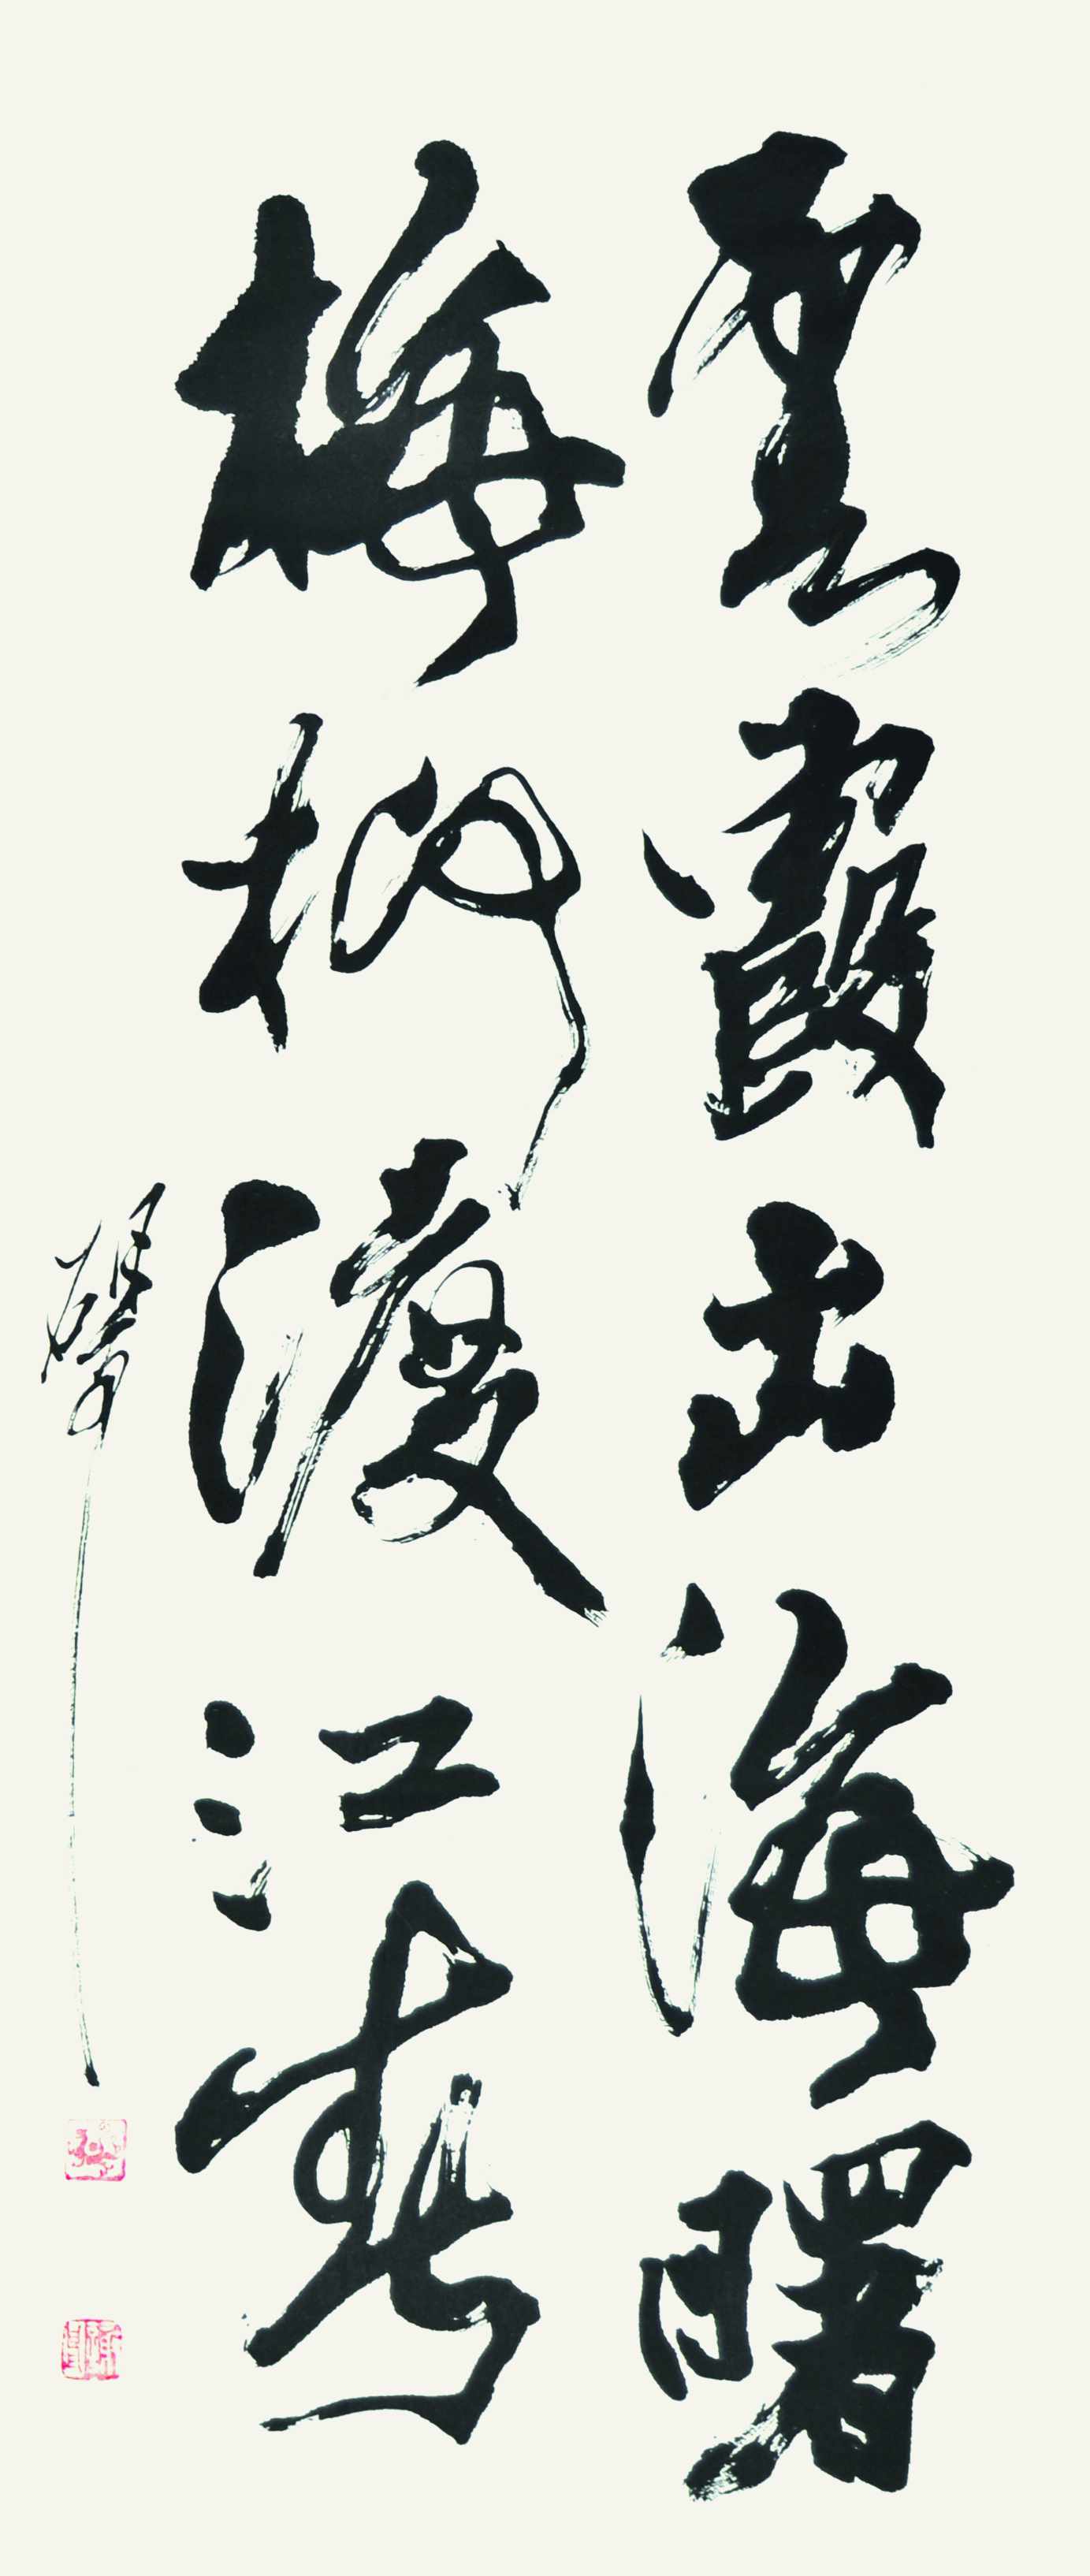 雲霞出海曙
梅柳渡江春